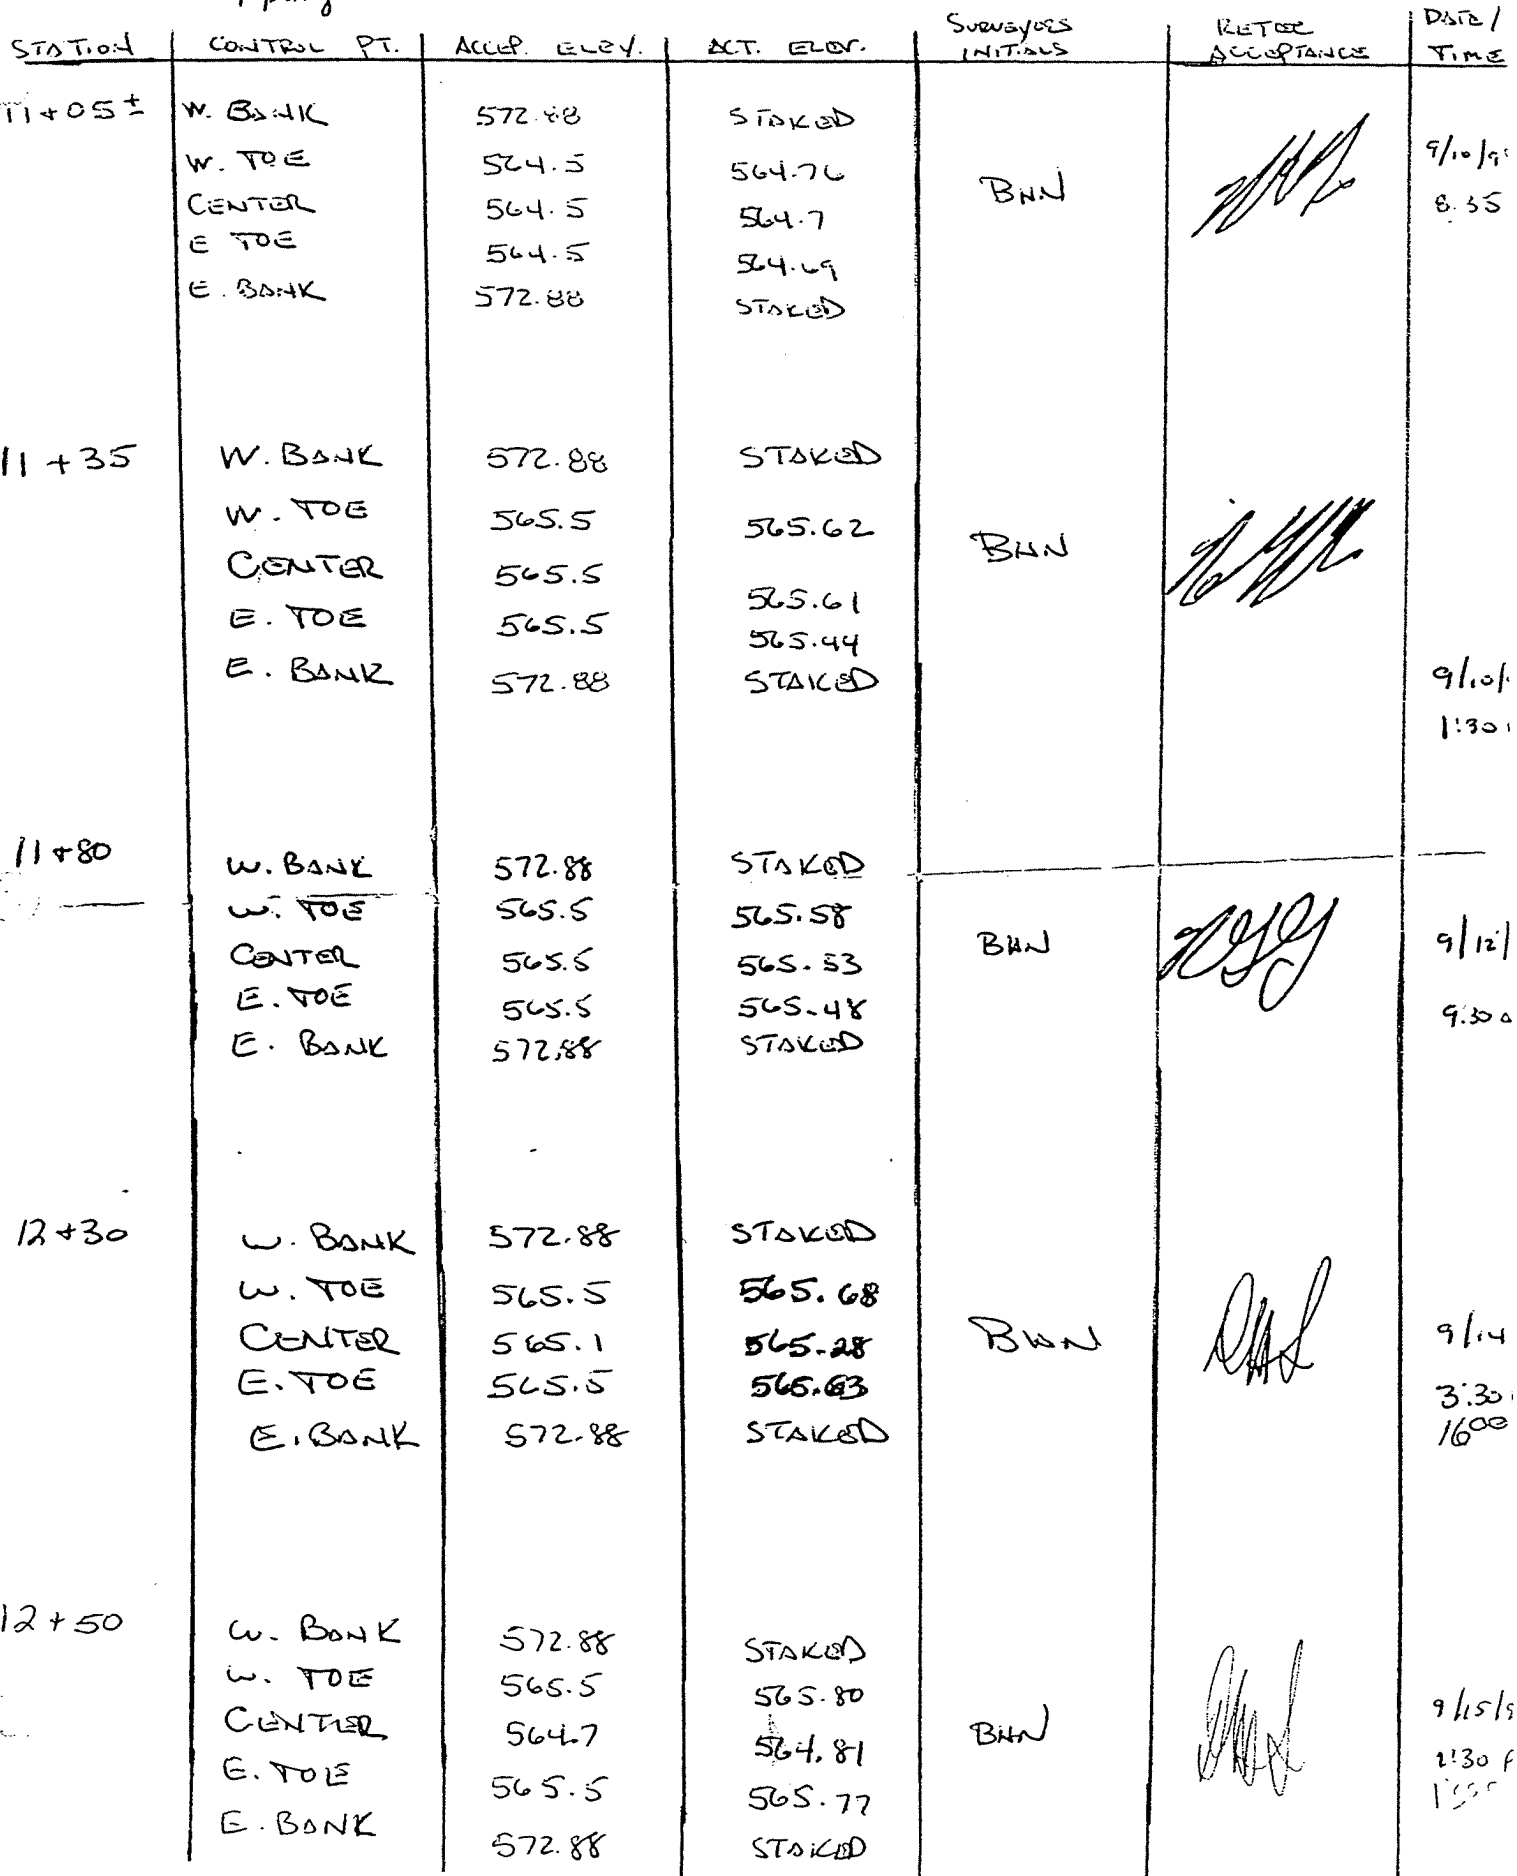 STATION CONTROL PT. ACCEP. ELEV. ACT. ELEV. SURVEYORS INITIALS RETEC ACCEPTANCE DATE/ TIME
11+05± W. BANK 572.88 STAKED
W. TOE 564.5 564.76 9/10/9
CENTER 564.5 564.7 BHN 8:35
E TOE 564.5 564.69
E. BANK 572.88 STAKED
11+35 W. BANK 572.88 STAKED
W. TOE 565.5 565.62 BHN
CENTER 565.5 565.61
E. TOE 565.5 565.44
E. BANK 572.88 STAKED 9/10/
1:30
11+80 W. BANK 572.88 STAKED
W. TOE 565.5 565.58
CENTER 565.5 565.53 BHN 9/12/
E. TOE 565.5 565.48 9:30 A
E. BANK 572.88 STAKED
12+30 W. BANK 572.88 STAKED
W. TOE 565.5 565.68
CENTER 565.1 565.28 BHN 9/14
E. TOE 565.5 565.63 3:30
E. BANK 572.88 STAKED 1600
12+50 W. BANK 572.88 STAKED
W. TOE 565.5 565.80
CENTER 564.7 564.81 BHN 9/15/9
E. TOE 565.5 565.77 1:30 P
E. BANK 572.88 STAKED